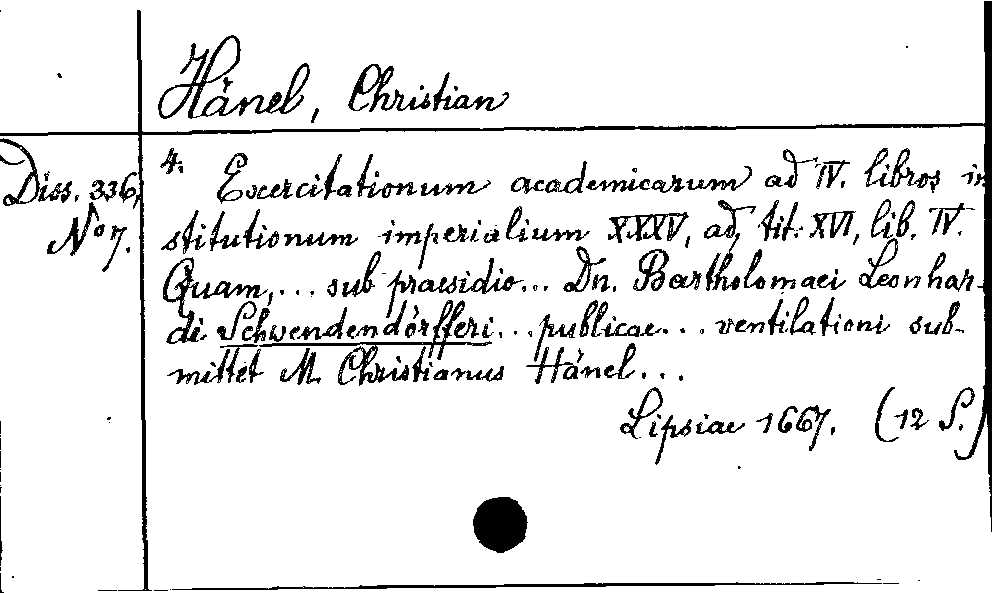 Hänel, Christian
Diss. 336,
No 7.
4. Exercitationum academicarum ad IV. libros in
stitutionum imperialium XXXV, ad tit. XVI, lib. IV.
Quam,... sub praesidio... Dn. Bartholomaei Leonhar-
di Schwendendörfferi... publicae... ventilationi sub-
mittet M. Christianus Hänel...
Lipsiae 1667. (12 S.)